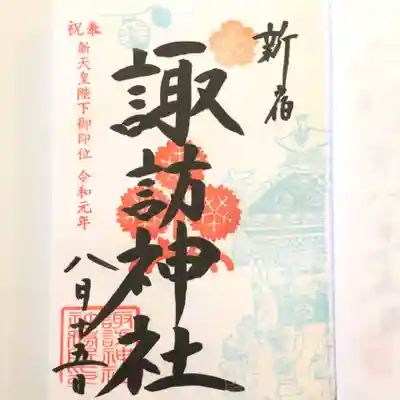 新宿
諏訪神社
奉祝
新天皇陛下御即位 令和元年
八月十五日
諏訪神